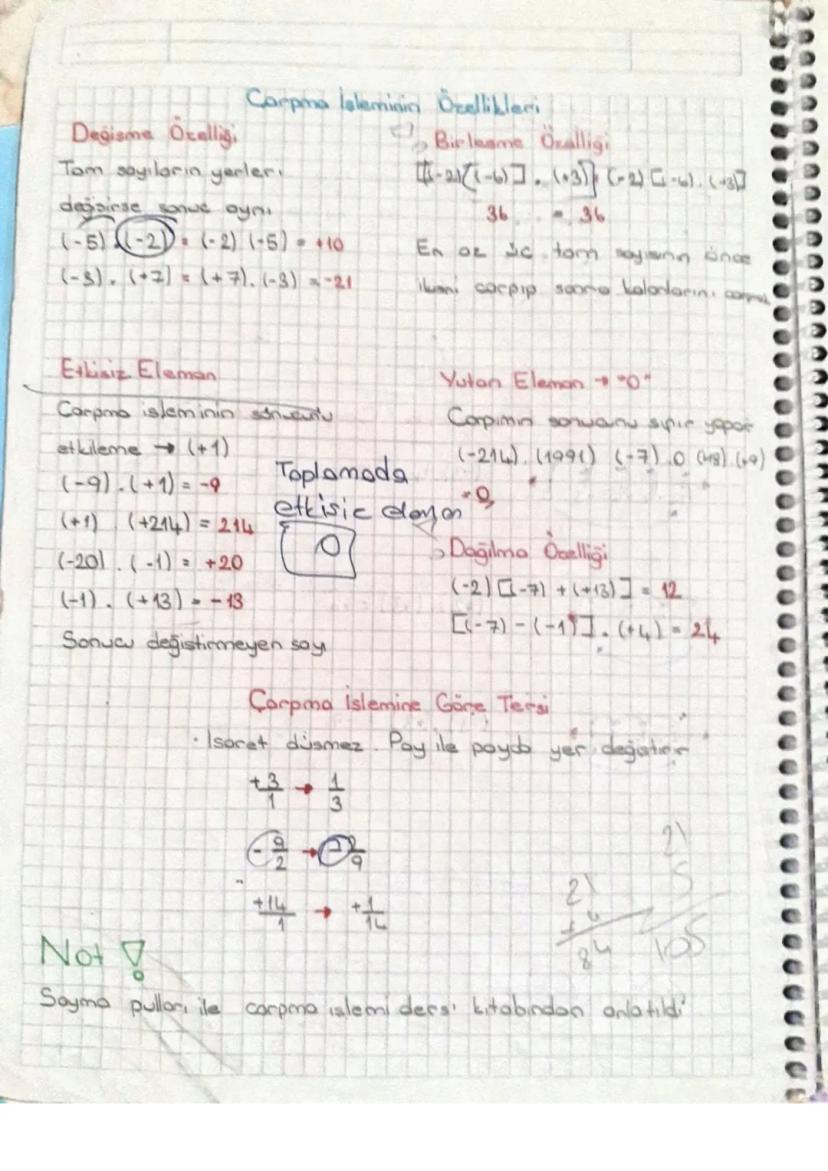 Çarpma İşleminin Özellikleri
Değişme Özelliği
Tam sayıların yerleri
değişirse sonuç aynı
(-5) (-2) = (-2) (-5) = +10
(-3) . (+7) = (+7) . (-3) = -21
Birleşme Özelliği
[(-2)[(-6)] . (+3)] (-2) [(-6) . (+3)]
36 = 36
En az üç tam sayının önce
ikisini çarpıp sonra kalanlarını
Etkisiz Eleman
Çarpma işleminin sonucunu
etkileme → (+1)
(-9) . (+1) = -9
(+1) (+214) = 214
(-20) . (-1) = +20
(-1) . (+13) = -13
Sonucu değiştirmeyen sayı
Toplamada
etkisiz eleman
0
Yutan Eleman → "0"
Çarpımın sonucunu sıfır yapar
(-214) . (1991) (-7) . 0 (+8) . (+9)
= 0
Dağılma Özelliği
(-2) [(-7) + (+13)] = 12
[(-7) - (-1)] . (+4) = 24
Çarpma İşlemine Göre Tersi
. İşaret düşmez. Pay ile payda yer değiştirir
+3/1 → 1/3
-9/2 → -2/9
+14/1 → +1/14
21
4
84
21
5
105
Not !
Sayma pulları ile çarpma işlemi ders kitabından anlatıldı